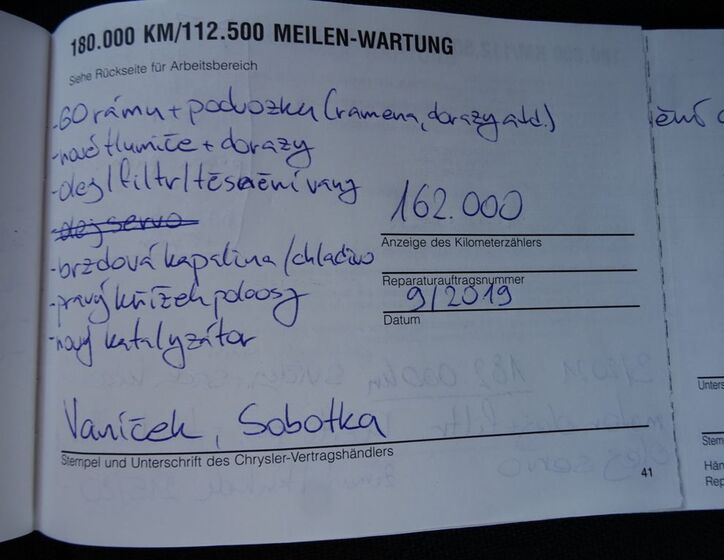 180.000 KM/112.500 MEILEN-WARTUNG
Siehe Rückseite für Arbeitsbereich
-GO rámu + podvozku (ramena, dorazy atd.)
-nové tlumiče + dorazy
-olej/filtr/těsnění vany
-olej servo
-brzdová kapalina/chladivo
-pravý křížek poloosy
-nový katalyzátor
162.000
Anzeige des Kilometerzählers
Reparaturauftragsnummer
9/2019
Datum
Vaníček, Sobotka
Stempel und Unterschrift des Chrysler-Vertragshändlers
41
Unters
Stem
Hän
Rep